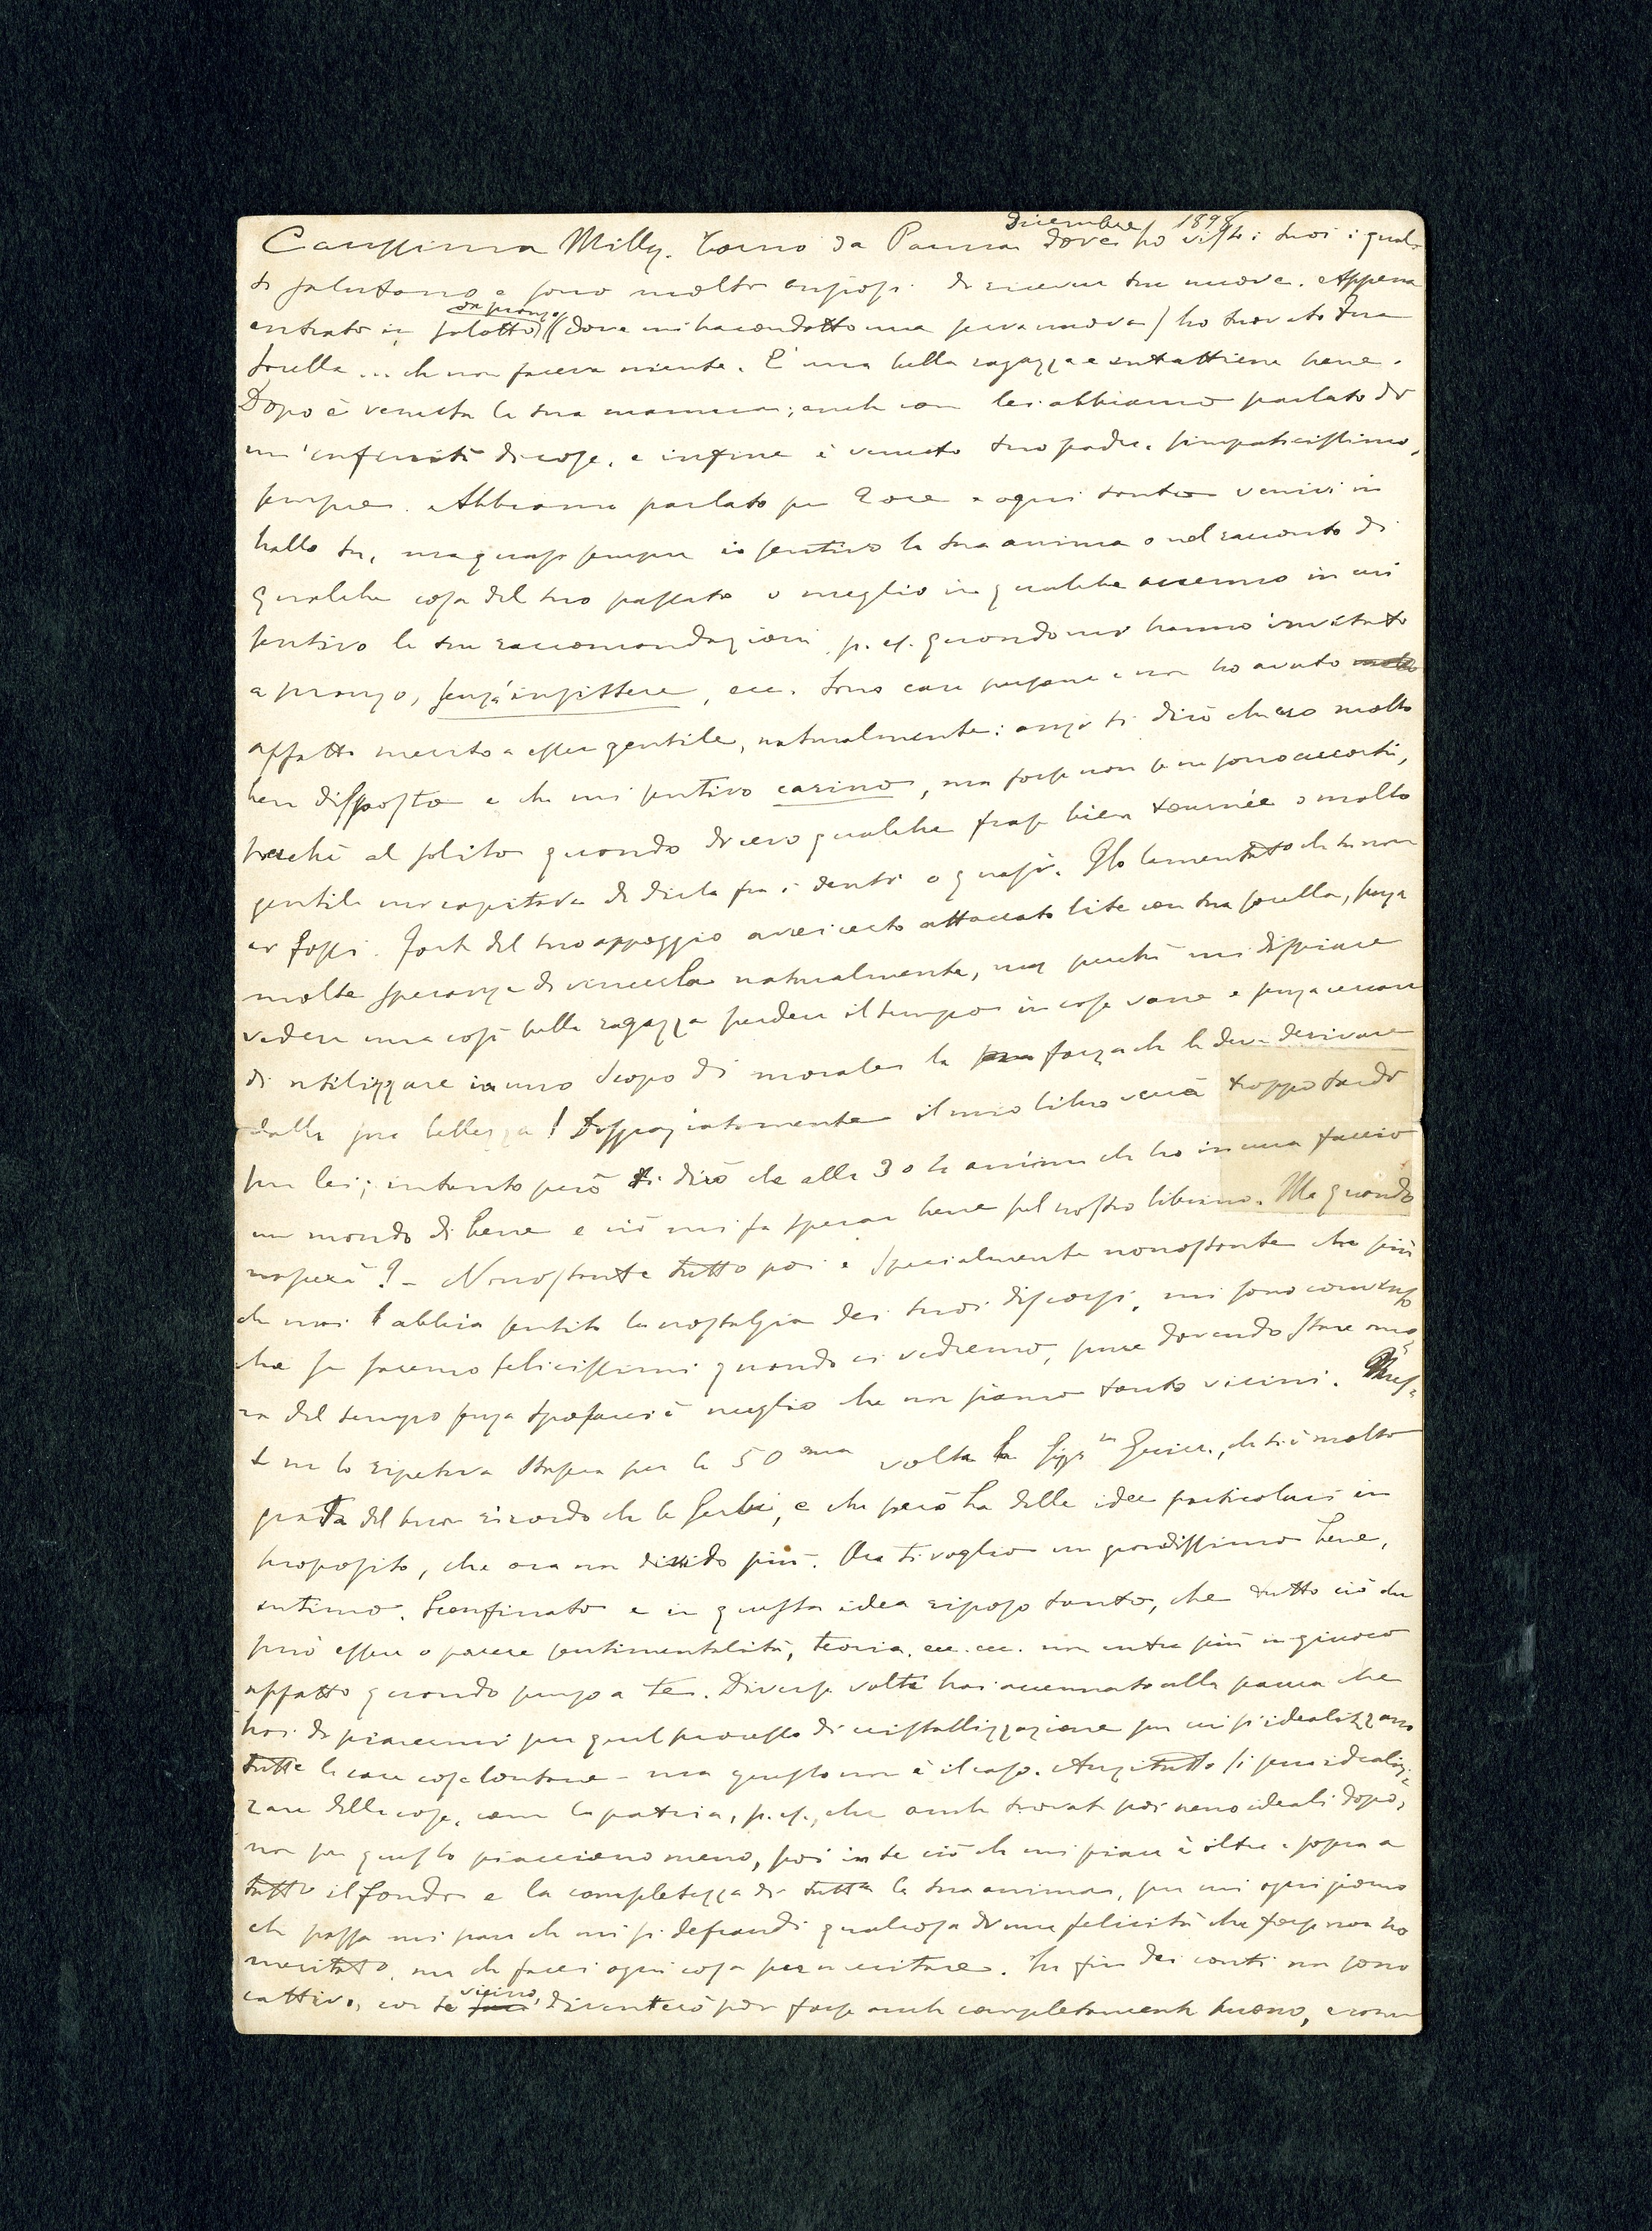 dicembre 1898
Carissima Milly. Torno da Parma dove ho visti i tuoi i quali
ti salutano e sono molto ansiosi di ricevere tue nuove. Appena
da pranzo
entrato in salotto (dove mi ha condotto una serva nuova) ho trovato tua
sorella ... che non faceva niente. È una bella ragazza e intrattiene bene.
Dopo è venuta la tua mamma; anche con lei abbiamo parlato di
un'infinità di cose, e infine è venuto tuo padre, simpaticissimo,
sempre. Abbiamo parlato per 2 ore e ogni tanto venivi in
ballo tu, ma quasi sempre io sentivo la tua anima o nel racconto di
qualche cosa del tuo passato o meglio in qualche accenno in cui
sentivo le tue raccomandazioni p. es. quando mi hanno invitato
a pranzo, senza insistere, ecc. Sono care persone e non ho avuto molto
affatto merito a esser gentile, naturalmente: anzi ti dirò che ero molto
ben disposto e che mi sentivo carino, ma forse non se ne sono accorti,
perché al solito quando dicevo qualche frase bien tournée o molto
gentile mi capitava di dirla fra i denti o quasi. Ho lamentato che tu non
ci fossi. Forte del tuo appoggio avrei certo attaccato lite con tua sorella, senza
molte speranze di vincerla naturalmente, ma perché mi dispiace
vedere una così bella ragazza perdere il tempo in cose vane e senza cercare
di utilizzare in uno scopo di morale la sua forza che le deve derivare
dalla sua bellezza! Disgraziatamente il mio libro verrà troppo tardi
per lei; intanto però ti dirò che alle 3 o 4 anime che ho in cura faccio
un mondo di bene e ciò mi fa sperar bene pel nostro librino. Ma quando
nascerà? - Nonostante tutto poi e specialmente nonostante che più
che mai abbia sentito la nostalgia dei tuoi discorsi, mi sono convinto
che se saremo felicissimi quando ci vedremo, pure dovendo stare anco-
ra del tempo senza sposarci è meglio che non siamo tanto vicini. Ques-
to me lo ripeteva stasera per la 50ma volta la Sigra , che ti è molto
grata del buon ricordo che le serbi, e che però ha delle idee particolari in
proposito, che ora non divido più. Ora ti voglio un grandissimo bene,
intimo, sconfinato e in questa idea riposo tanto, che tutto ciò che
può essere o parere sentimentalità, teoria, ecc. ecc. non entra più in giuoco
affatto quando penso a te. Diverse volte hai accennato alla paura che
hai di piacermi per quel processo di cristallizzazione per cui si idealizzano
tutte le care cose lontane - ma questo non è il caso. Anzitutto si può idealiz-
zare delle cose, come la patria, p. es., che anche trovate poi meno ideali dopo,
non per questo piacciono meno, poi in te ciò che mi piace è oltre e sopra a
tutto il fondo e la completezza di tutta la tua anima, per cui ogni giorno
che passa mi pare che mi si defraudi qualcosa di una felicità che forse non ho
meritato, ma che farei ogni cosa per meritare. In fin dei conti non sono
vicino,
cattivo, con te diventerò poi forse anche completamente buono, e come